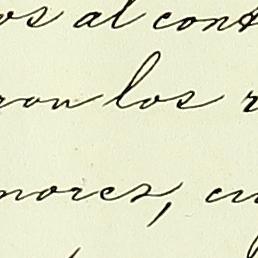 os al cont
ron los r
mores, en